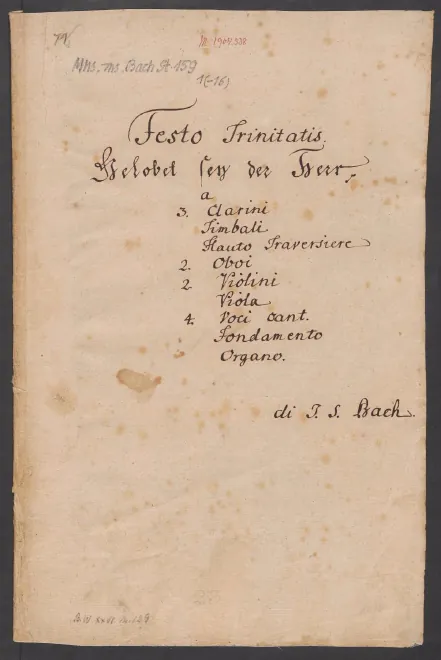 M. 1904.338
Mus. ms. Bach St 159
1(-16)
Festo Trinitatis.
Gelobet sey der Herr,
a
3. Clarini
Timbali
Flauto Traversiere
2. Oboi
2. Violini
Viola
4. Voci cant.
Fondamento
Organo.
di J. S. Bach.